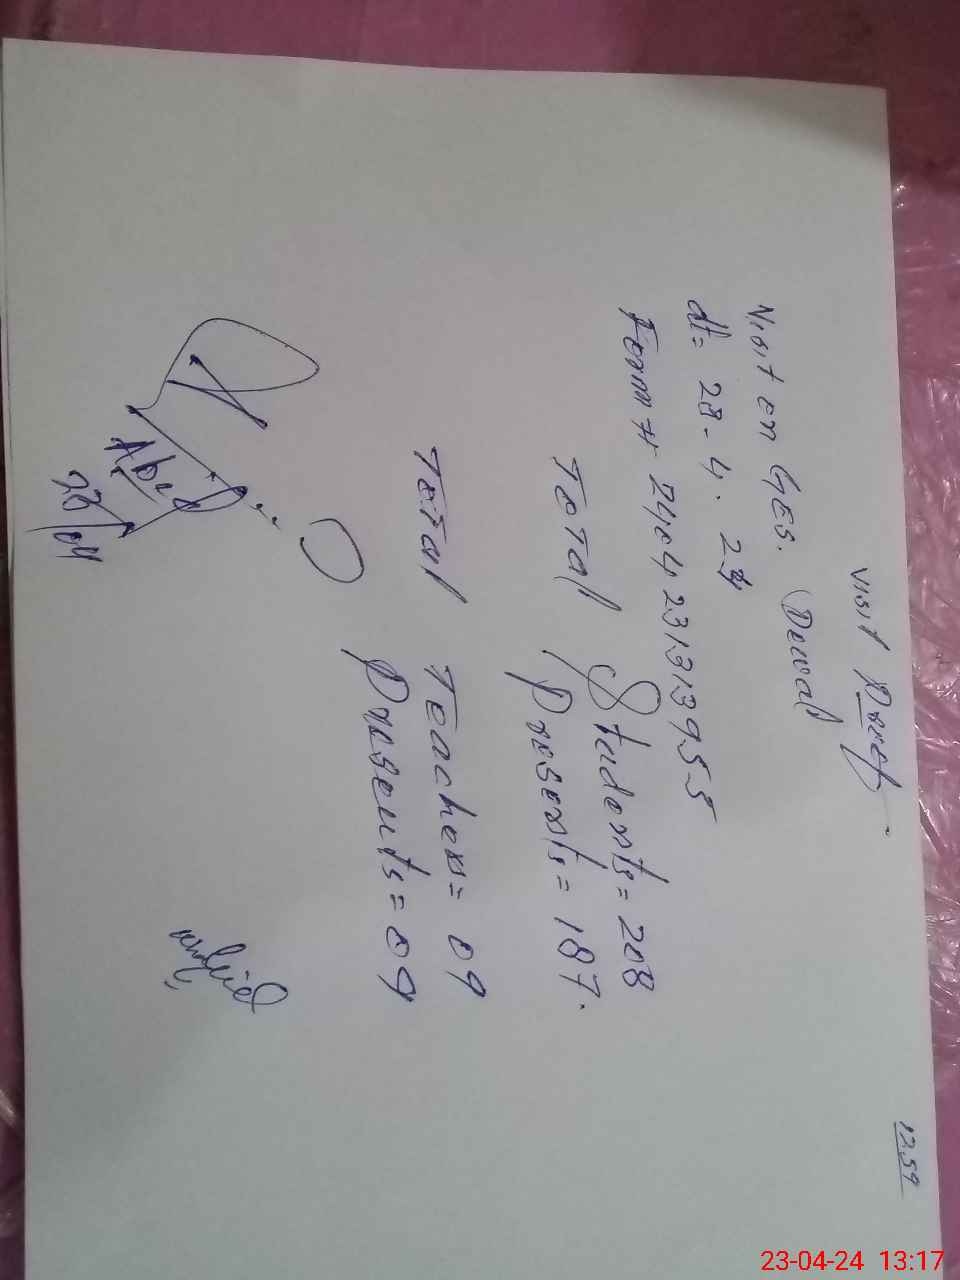 12.59
Visit
Visit on GES. Dewal
dt = 23-4.24
Form # 24042313955
Total Students = 208
Presents = 187.
Total Teachers = 09
Presents = 09
Abid
23/04
23-04-24 13:17